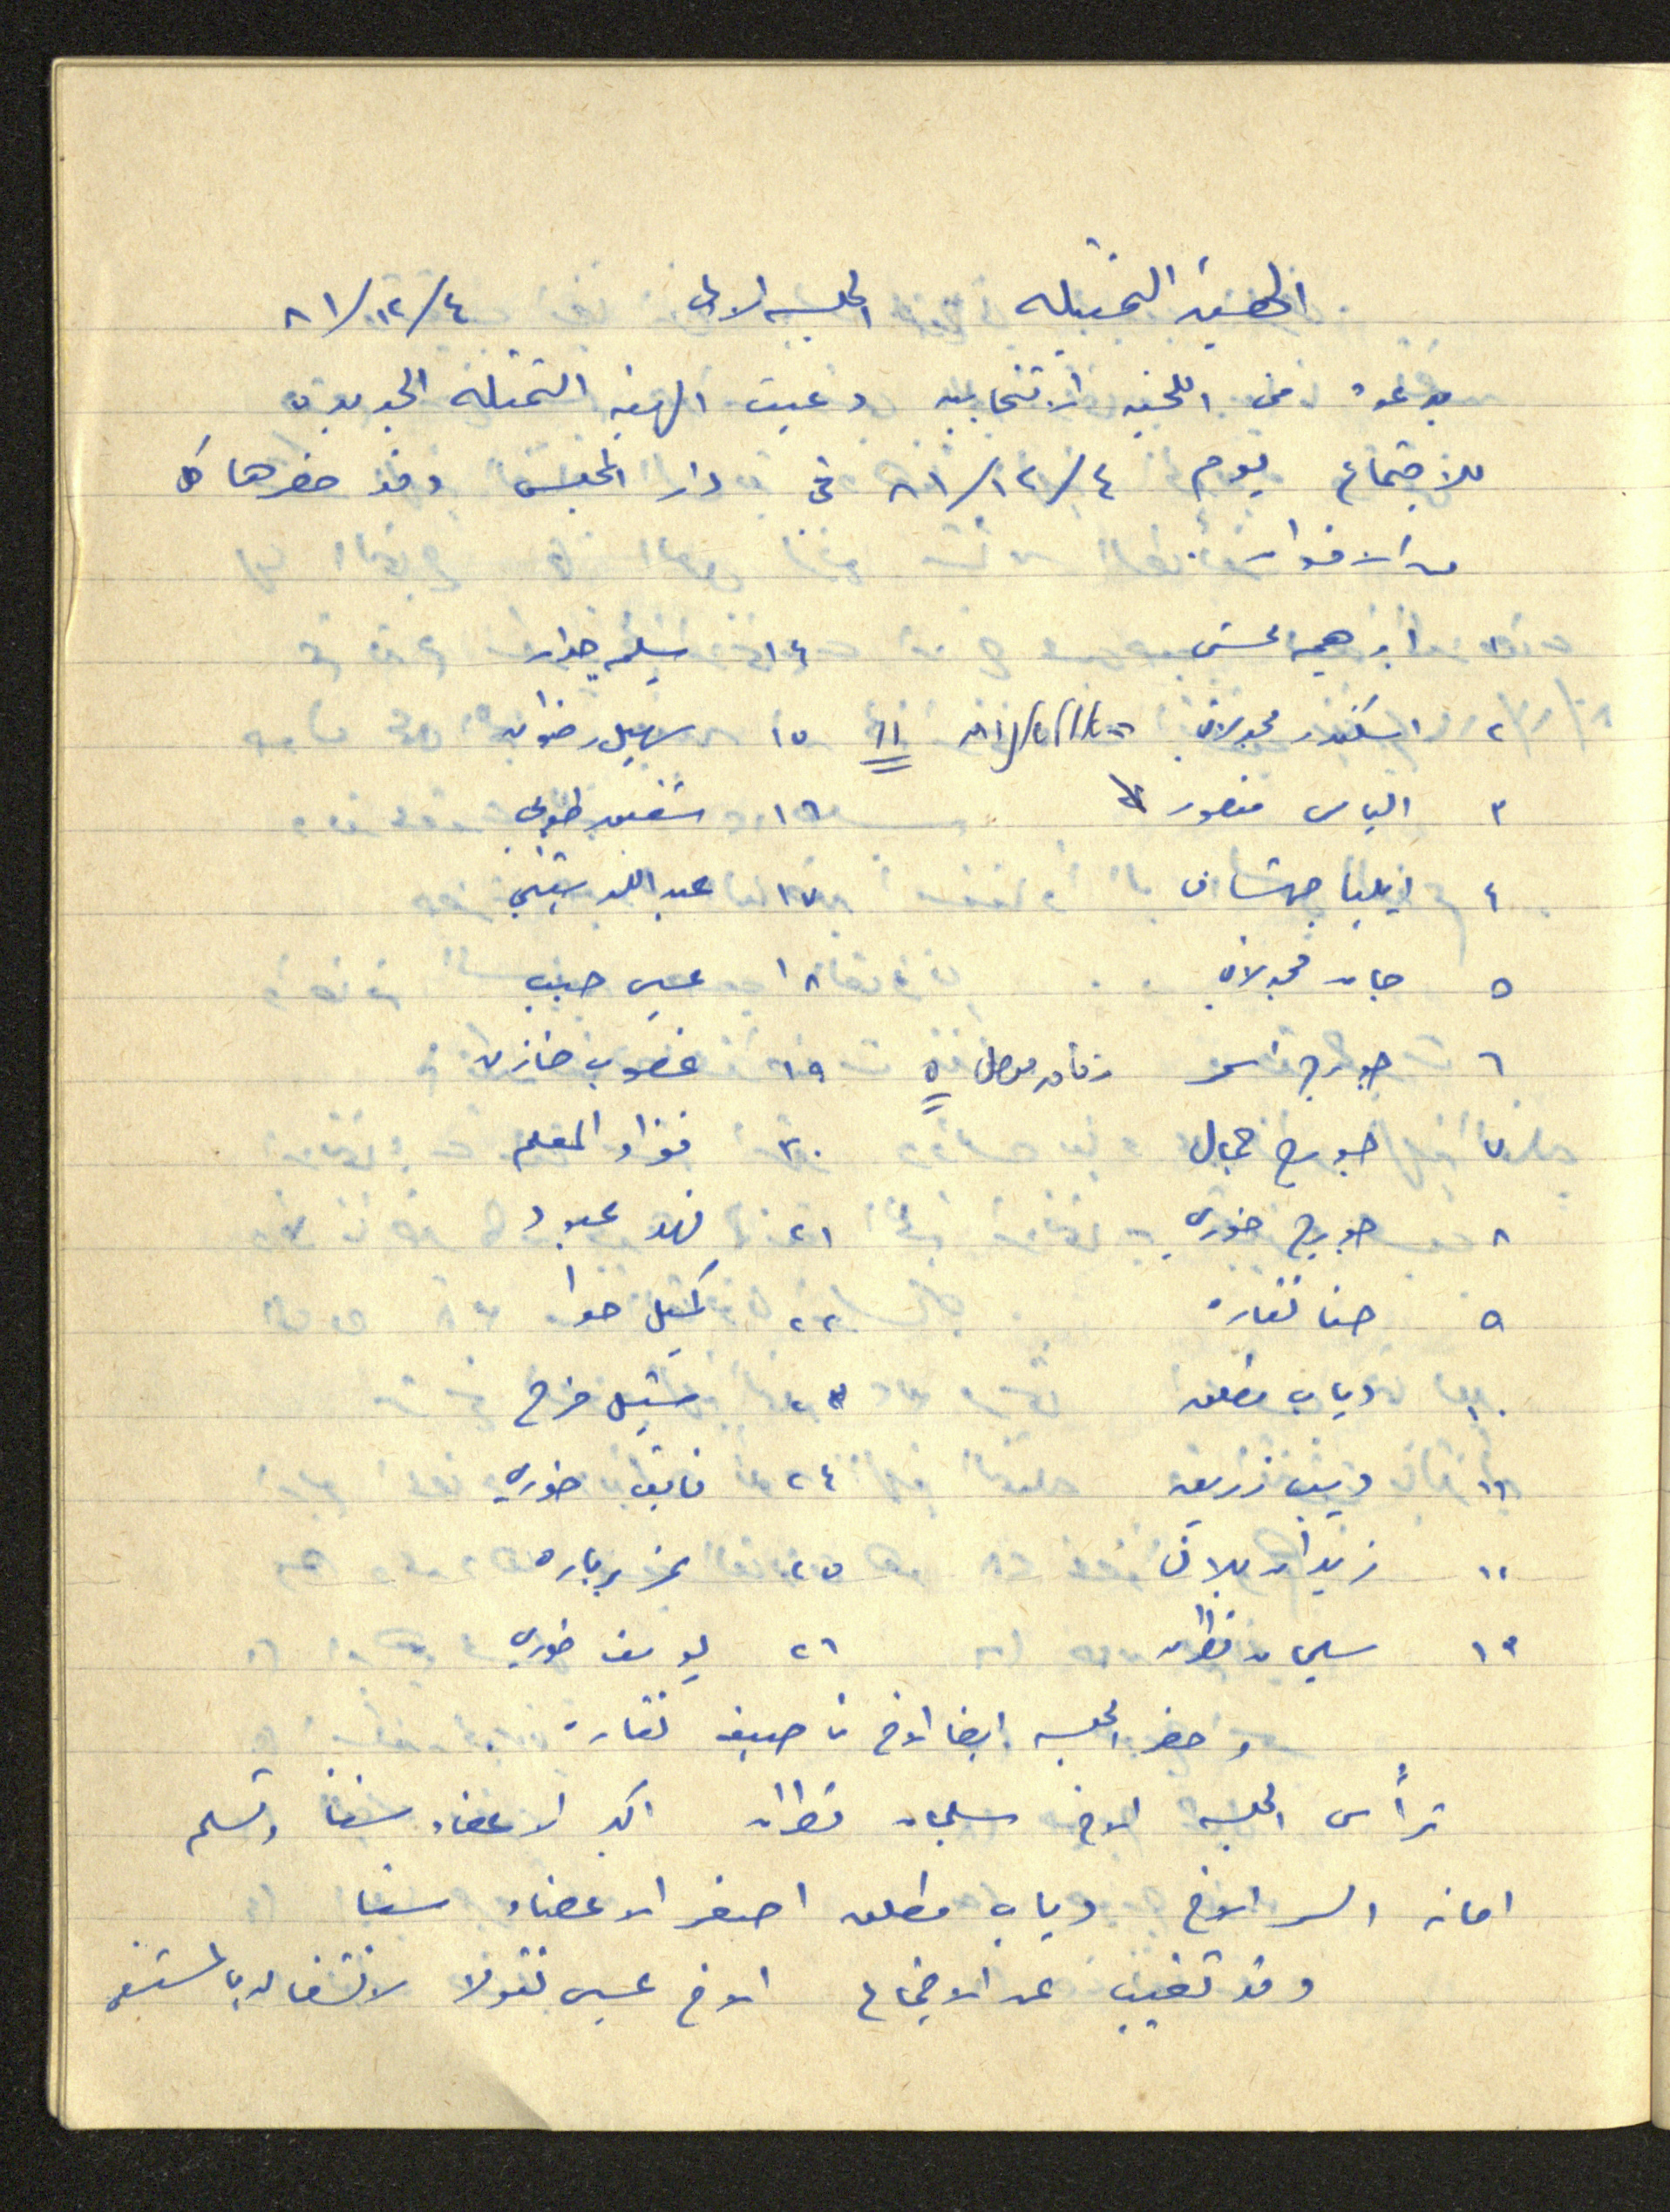 الهيئة التمثيلية الجلسه الاولى ٤/١٢/٨١
بدعوة من اللجنه الانتخابيه دعيت الهيئه التمثيله الجديدة
للاجتماع يوم ٤/١٢/٨١ في دار المجلس وقد حضرها كل
من الاخوان.
١ ابراهيم محسن ١٤ سليم حداد
٢ اسكندر مجدلاني ١١ ١٥ سهيل رضوان
٣ الياس منصور ١٦ شفيق طوبي
٤ ايليا جهشان ١٧ عبدالله شتيني
٥ جان مجدلاني ١٨ عيسى حبيب
٦ جورج اسمر ٥ ١٩ غصوب خازن
٧ جورج جمال ٢٠ فؤاد المعلم
٨ جورج خوري ٢١ فهد عبود
٩ حنا نقاره ٢٢ كميل حوا
١٠ دياب مطلق ٢٣ ميشيل فرح
١١ ديب زريق ٢٤ نايف خوري
١٢ زيدان بلان ٢٥ نمر بباره
١٣ سليمان قطران ٢٦ يوسف خوري
وحضر الجلسه ايضا الاخ ناصيف نقاره.
ترأس الجلسه الاخ سليمان قطران اكبر الاعضاء سنا وتسلم
امانه السر الاخ دياب مطلق اصغر الاعضاء سنا
وقد تغيب عن الاجتماع الاخ عيسى نقولا لانشغاله بالمستشفى